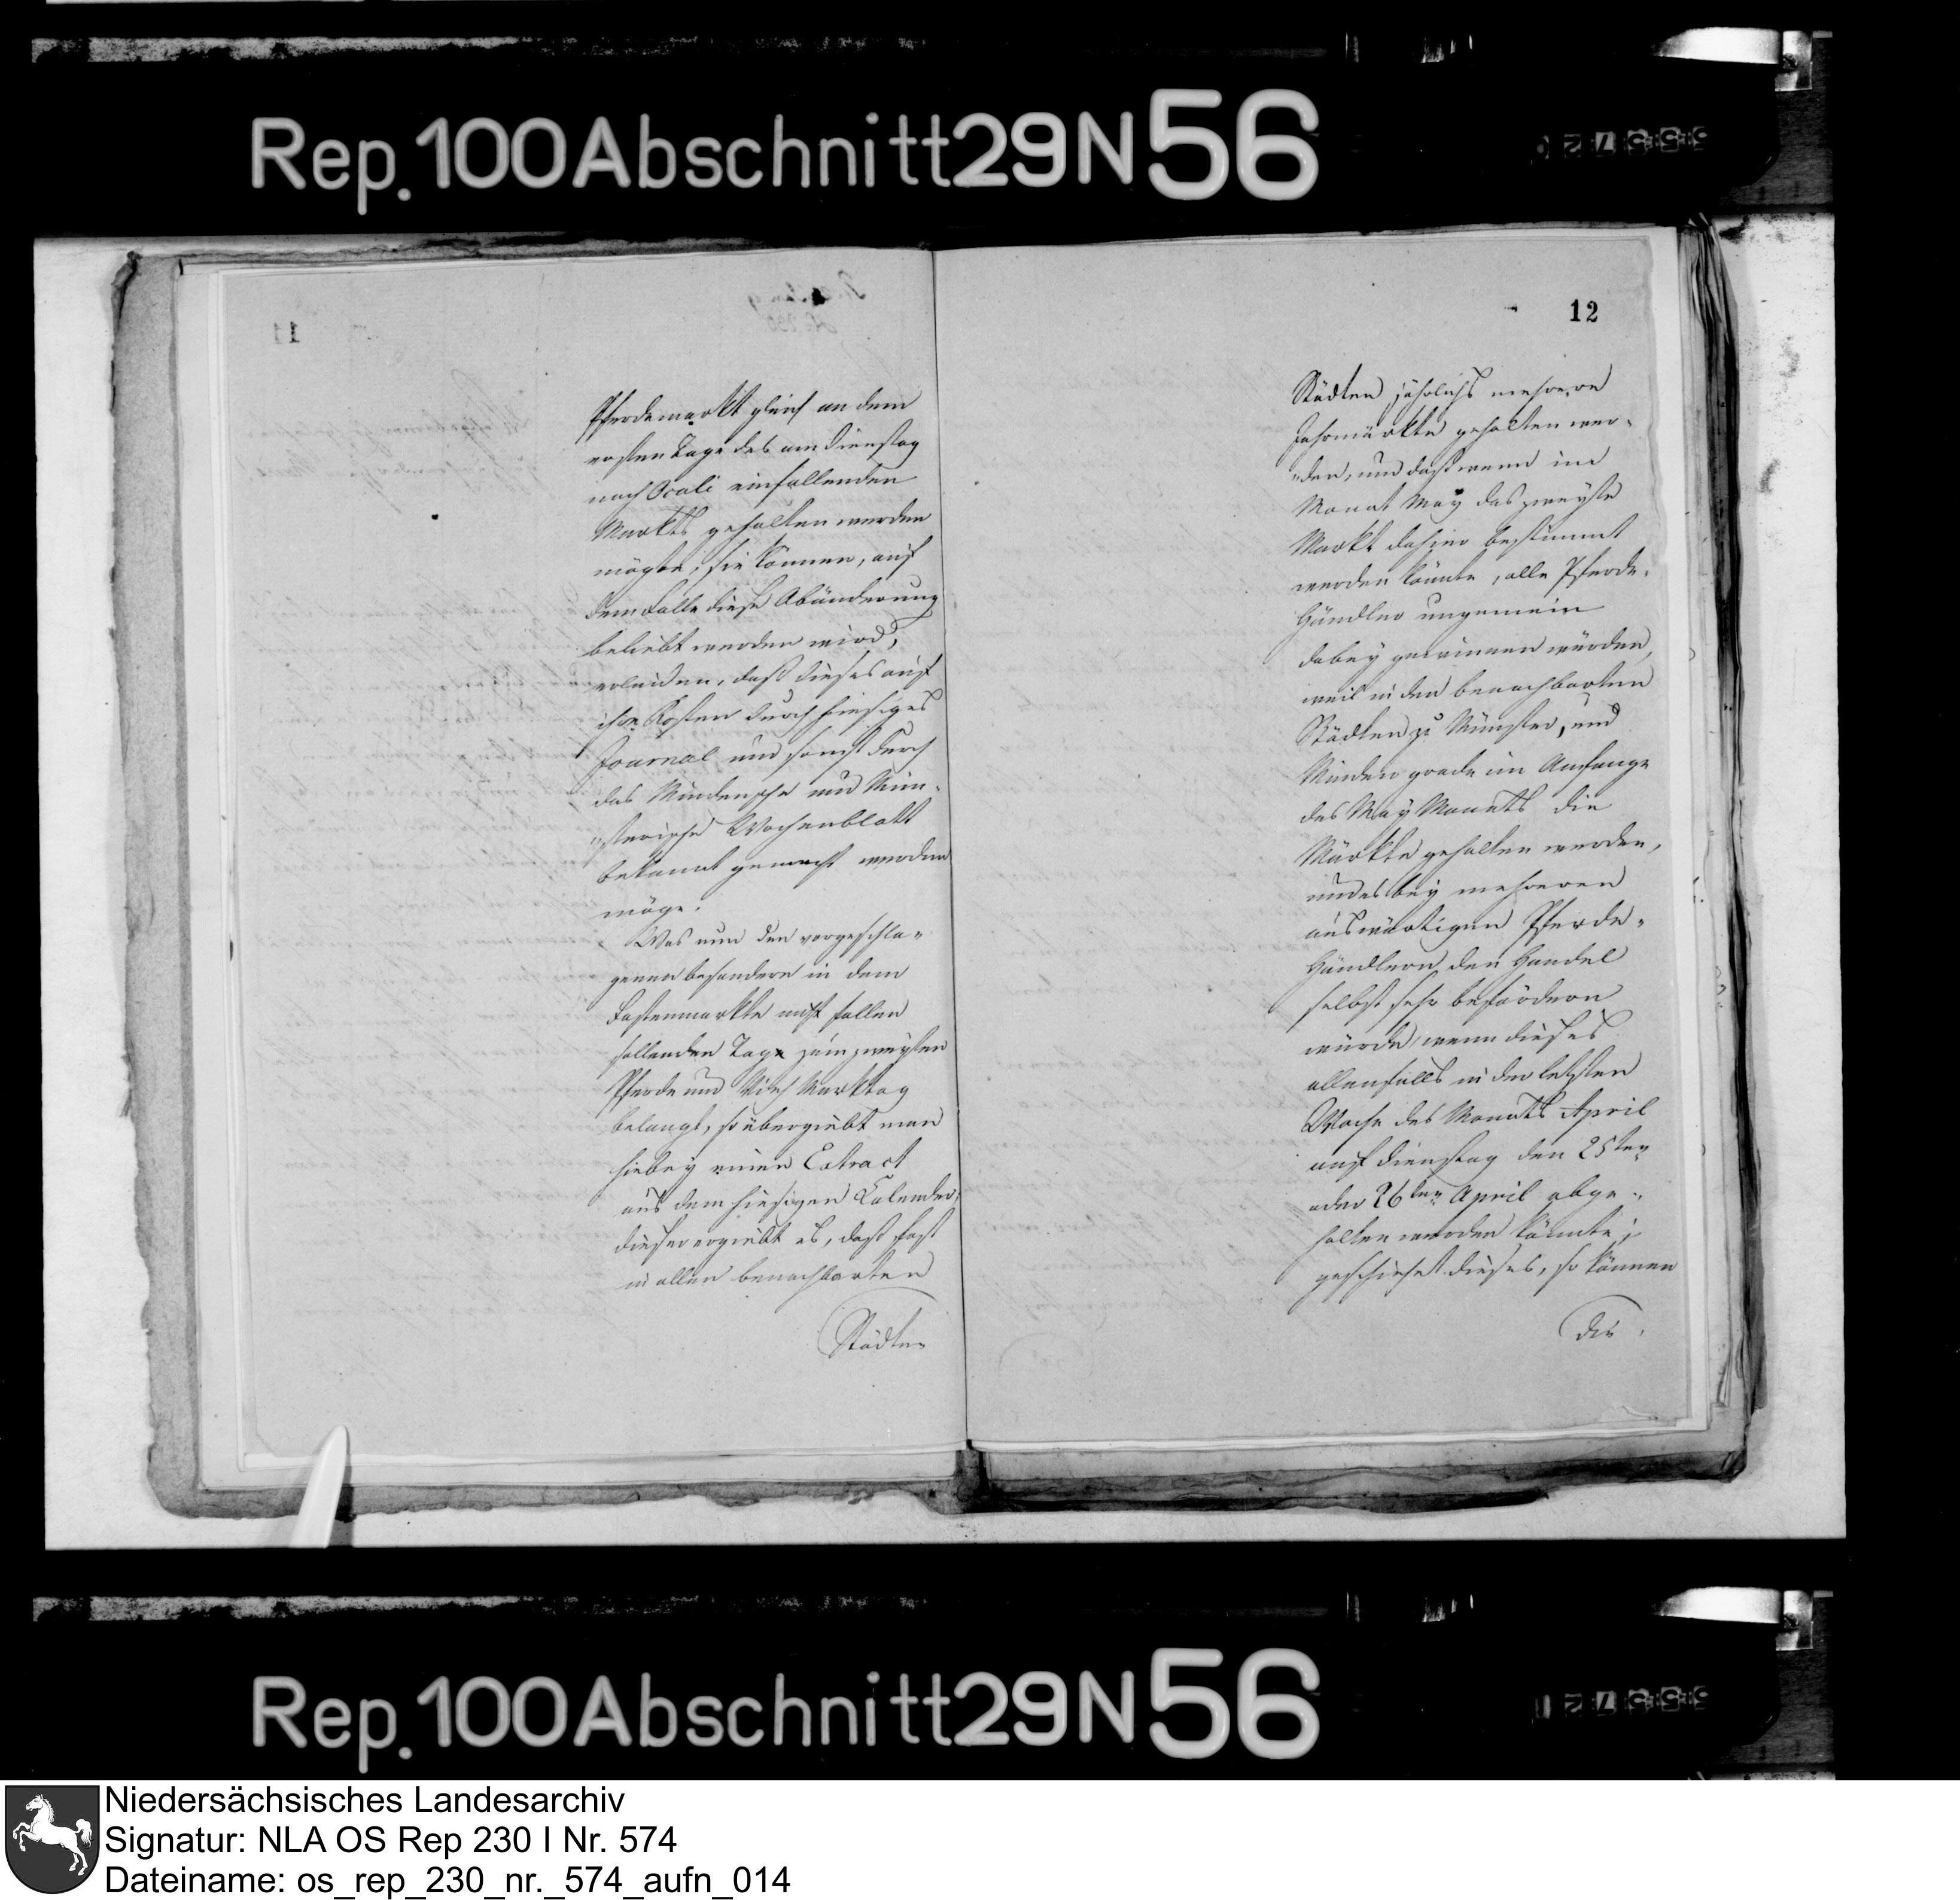 Rep. 100 Abschnitt 29 N 56
Pferdemarkt gleich an dem
ersten Tage des am Dienstag
nach Oculi einfallenden
Markts gehalten werden
mögte; sie können, auf
dem Falle diese Abänderung
beliebt werden wird,
erleiden, daß dieses auf
ihre Kosten durch hiesiges
Journal und sonst durch
das Mindensche und Mün-
„sterische Wochenblatt
bekannt gemacht werden
möge.
Was nun den vorgeschla-
genen besondern in dem
Fastenmarkte mit fallen
sollenden Tag zum zweyten
Pferde und Vieh Marktag
belangt, so übergiebt man
hiebey einen Extract
aus dem hiesigen Calender,
dieser ergiebt es, daß fast
in allen benachbarten
Städten
12
Städten jährlichs mehrere
Jahrmärkte gehalten wer-
„den, und daß wenn im
Monat May das zweyte
Markt dahier bestimmt
werden könnte, alle Pferde-
Händler ungemein
dabey gewinnen würden,
weil in den benachbarten
Städten zu Münster, und
Minden grade im Anfange
des May Monats die
Märkte gehalten werden,
und es bey mehreren
auswärtigen Pferde-
Händlern den Handel
selbst sehr befördern
würde, wenn dieses
allenfalls in der letzten
Woche des Monats April
auf Dienstag den 25ten
oder 26ten April abge-
halten werden könnte;
geschiehet dieses, so können
die
Rep. 100 Abschnitt 29 N 56
Niedersächsisches Landesarchiv
Signatur: NLA OS Rep 230 I Nr. 574
Dateiname: os_rep_230_nr._574_aufn_014